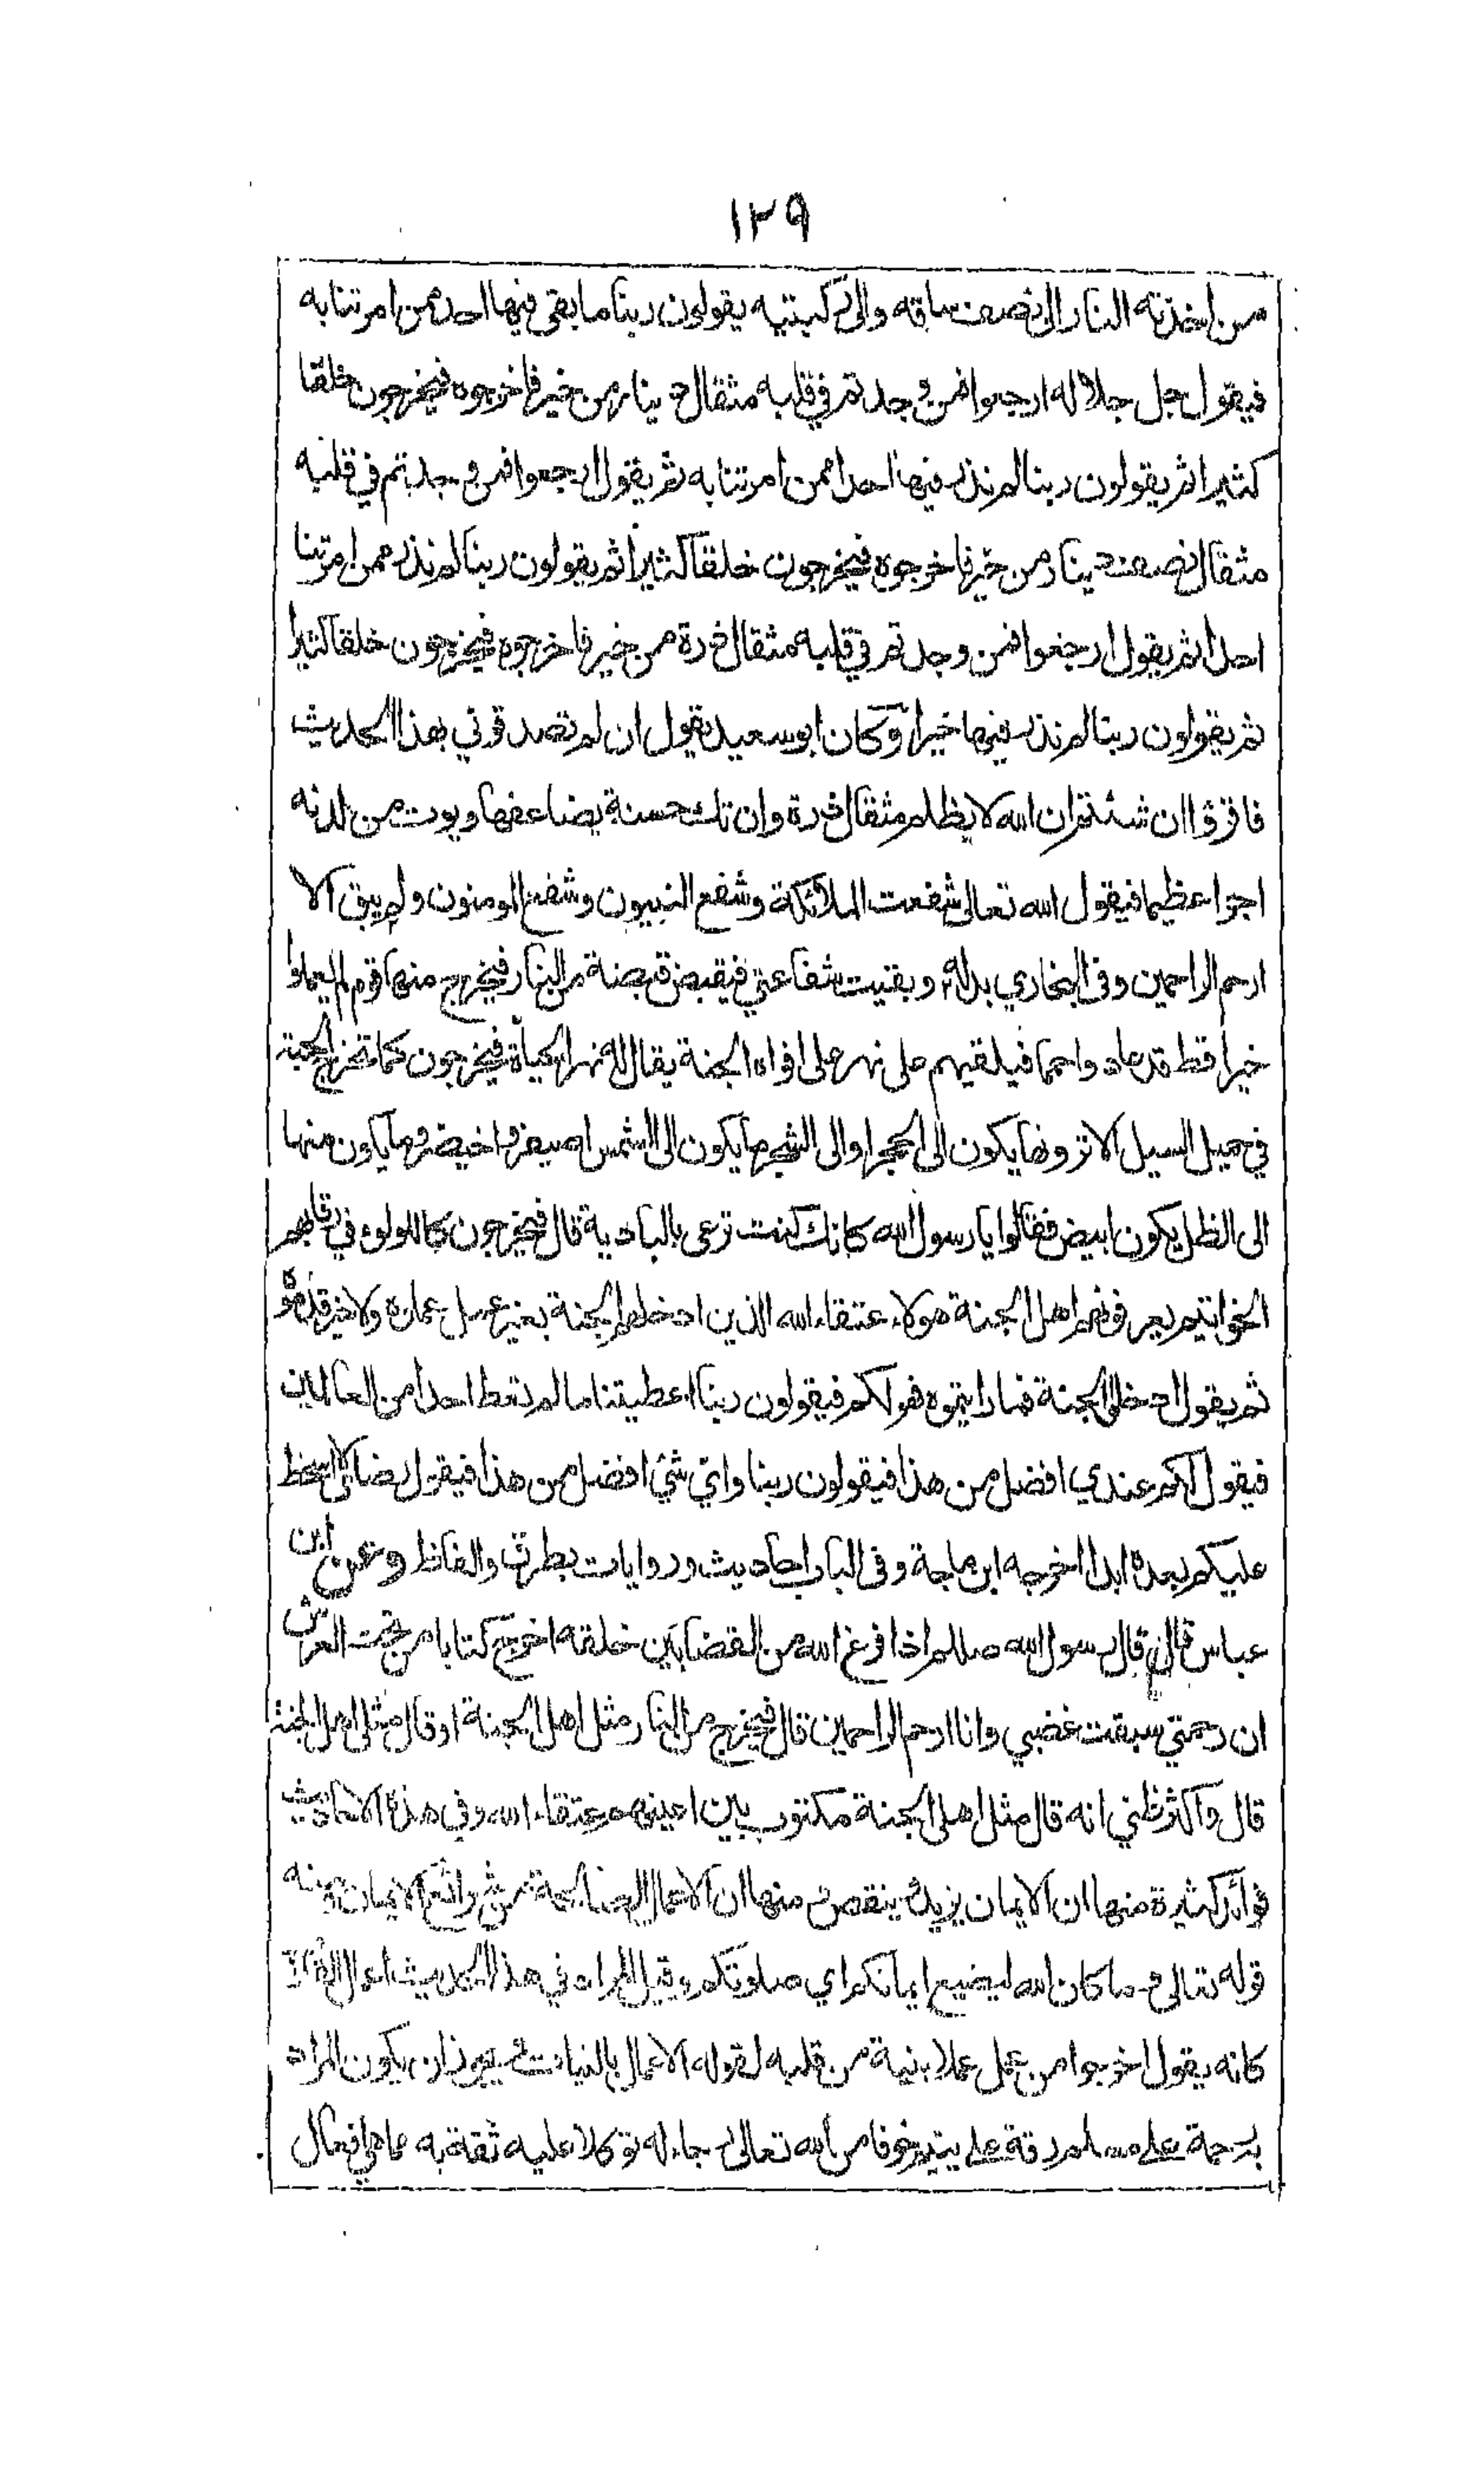 ١٢٩
من اخذته النار الى نصف ساقه والى ركبتيه يقولون ربنا ما بقى فيها احد ممن امرتنا به
فيقول جل جلاله ارجعوا فمن وجدتم في قلبه مثقال دينار من خير فاخرجوه فيخرجون خلقا
كثيرا ثم يقولون ربنا لم نذر فيها احدا ممن امرتنا به ثم يقول ارجعوا فمن وجدتم في قلبه
مثقال نصف دينار من خير فاخرجوه فيخرجون خلقا كثيرا ثم يقولون ربنا لم نذر ممن امرتنا
احدا ثم يقول ارجعوا فمن وجدتم في قلبه مثقال ذرة من خير فاخرجوه فيخرجون خلقا كثيرا
ثم يقولون ربنا لم نذر فيها خيرا وكان ابو سعيد يقول ان لم تصدقوني بهذا الحديث
فاقرؤا ان شئتم ان الله لا يظلم مثقال ذرة وان تك حسنة يضاعفها ويوت من لدنه
اجرا عظيما فيقول الله تعالى شفعت الملائكة وشفع النبيون وشفع المومنون ولم يبق الا
ارحم الراحمين وفى البخاري بدله وبقيت شفاعتي فيقبض قبضة من النار فيخرج منها قوم لم يعملوا
خيرا قط قد عادوا حمما فيلقيهم على نهر على افواه الجنة يقال له نهر الحياة فيخرجون كما تخرج الحبة
في حميل السيل الا ترونها يكون الى الحجر او الى الشجر ما يكون الى الشمس اصيفر واخيضر وما يكون منها
الى الظل يكون ابيض فقالوا يا رسول الله كانك كنت ترعى بالبادية قال فيخرجون كاللولوء في رقابهم
الخواتيم يعرفونهم اهل الجنة هولاء عتقاء الله الذين ادخلهم الجنة بغير عمل عملوه ولا خير قدموه
ثم يقول ادخلوا الجنة فما رايتموه فهو لكم فيقولون ربنا اعطيتنا ما لم تعط احدا من العالمين
فيقول لكم عندي افضل من هذا فيقولون ربنا واي شئ افضل من هذا فيقول رضائى لا اسخط
عليكم بعده ابدا اخرجه ابن ماجة وفى الباب احاديث وروايات بطرق والفاظ وعن ابن
عباس قال قال رسول الله صللم اذا فرغ الله من القضا بين خلقه اخرج كتابا من تحت العرش
ان رحمتي سبقت غضبي وانا ارحم الراحمين قال فيخرج من النار مثل اهل الجنة او قال مثلى اهل الجنة
قال واكثر ظني انه قال مثل اهل الجنة مكتوب بين اعينهم عتقاء الله وفى هذه الاحاديث
فوائد كثيرة منها ان الايمان يزيد وينقص منها ان الاعمال الصالحة من شرائع الايمان ومنه
قوله تعالى وما كان الله ليضيع ايمانكم اي صلوتكم وقيل المراد في هذا الحديث اعمال القلوب
كانه يقول اخرجوا من عمل عملا بنية من قلبه لقوله الاعمال بالنيات ويجوز ان يكون المراد
رحمة على مسلم رقة على يتيم خوفا من الله تعالى رجاء له توكلا عليه ثقة به مما هي افعال